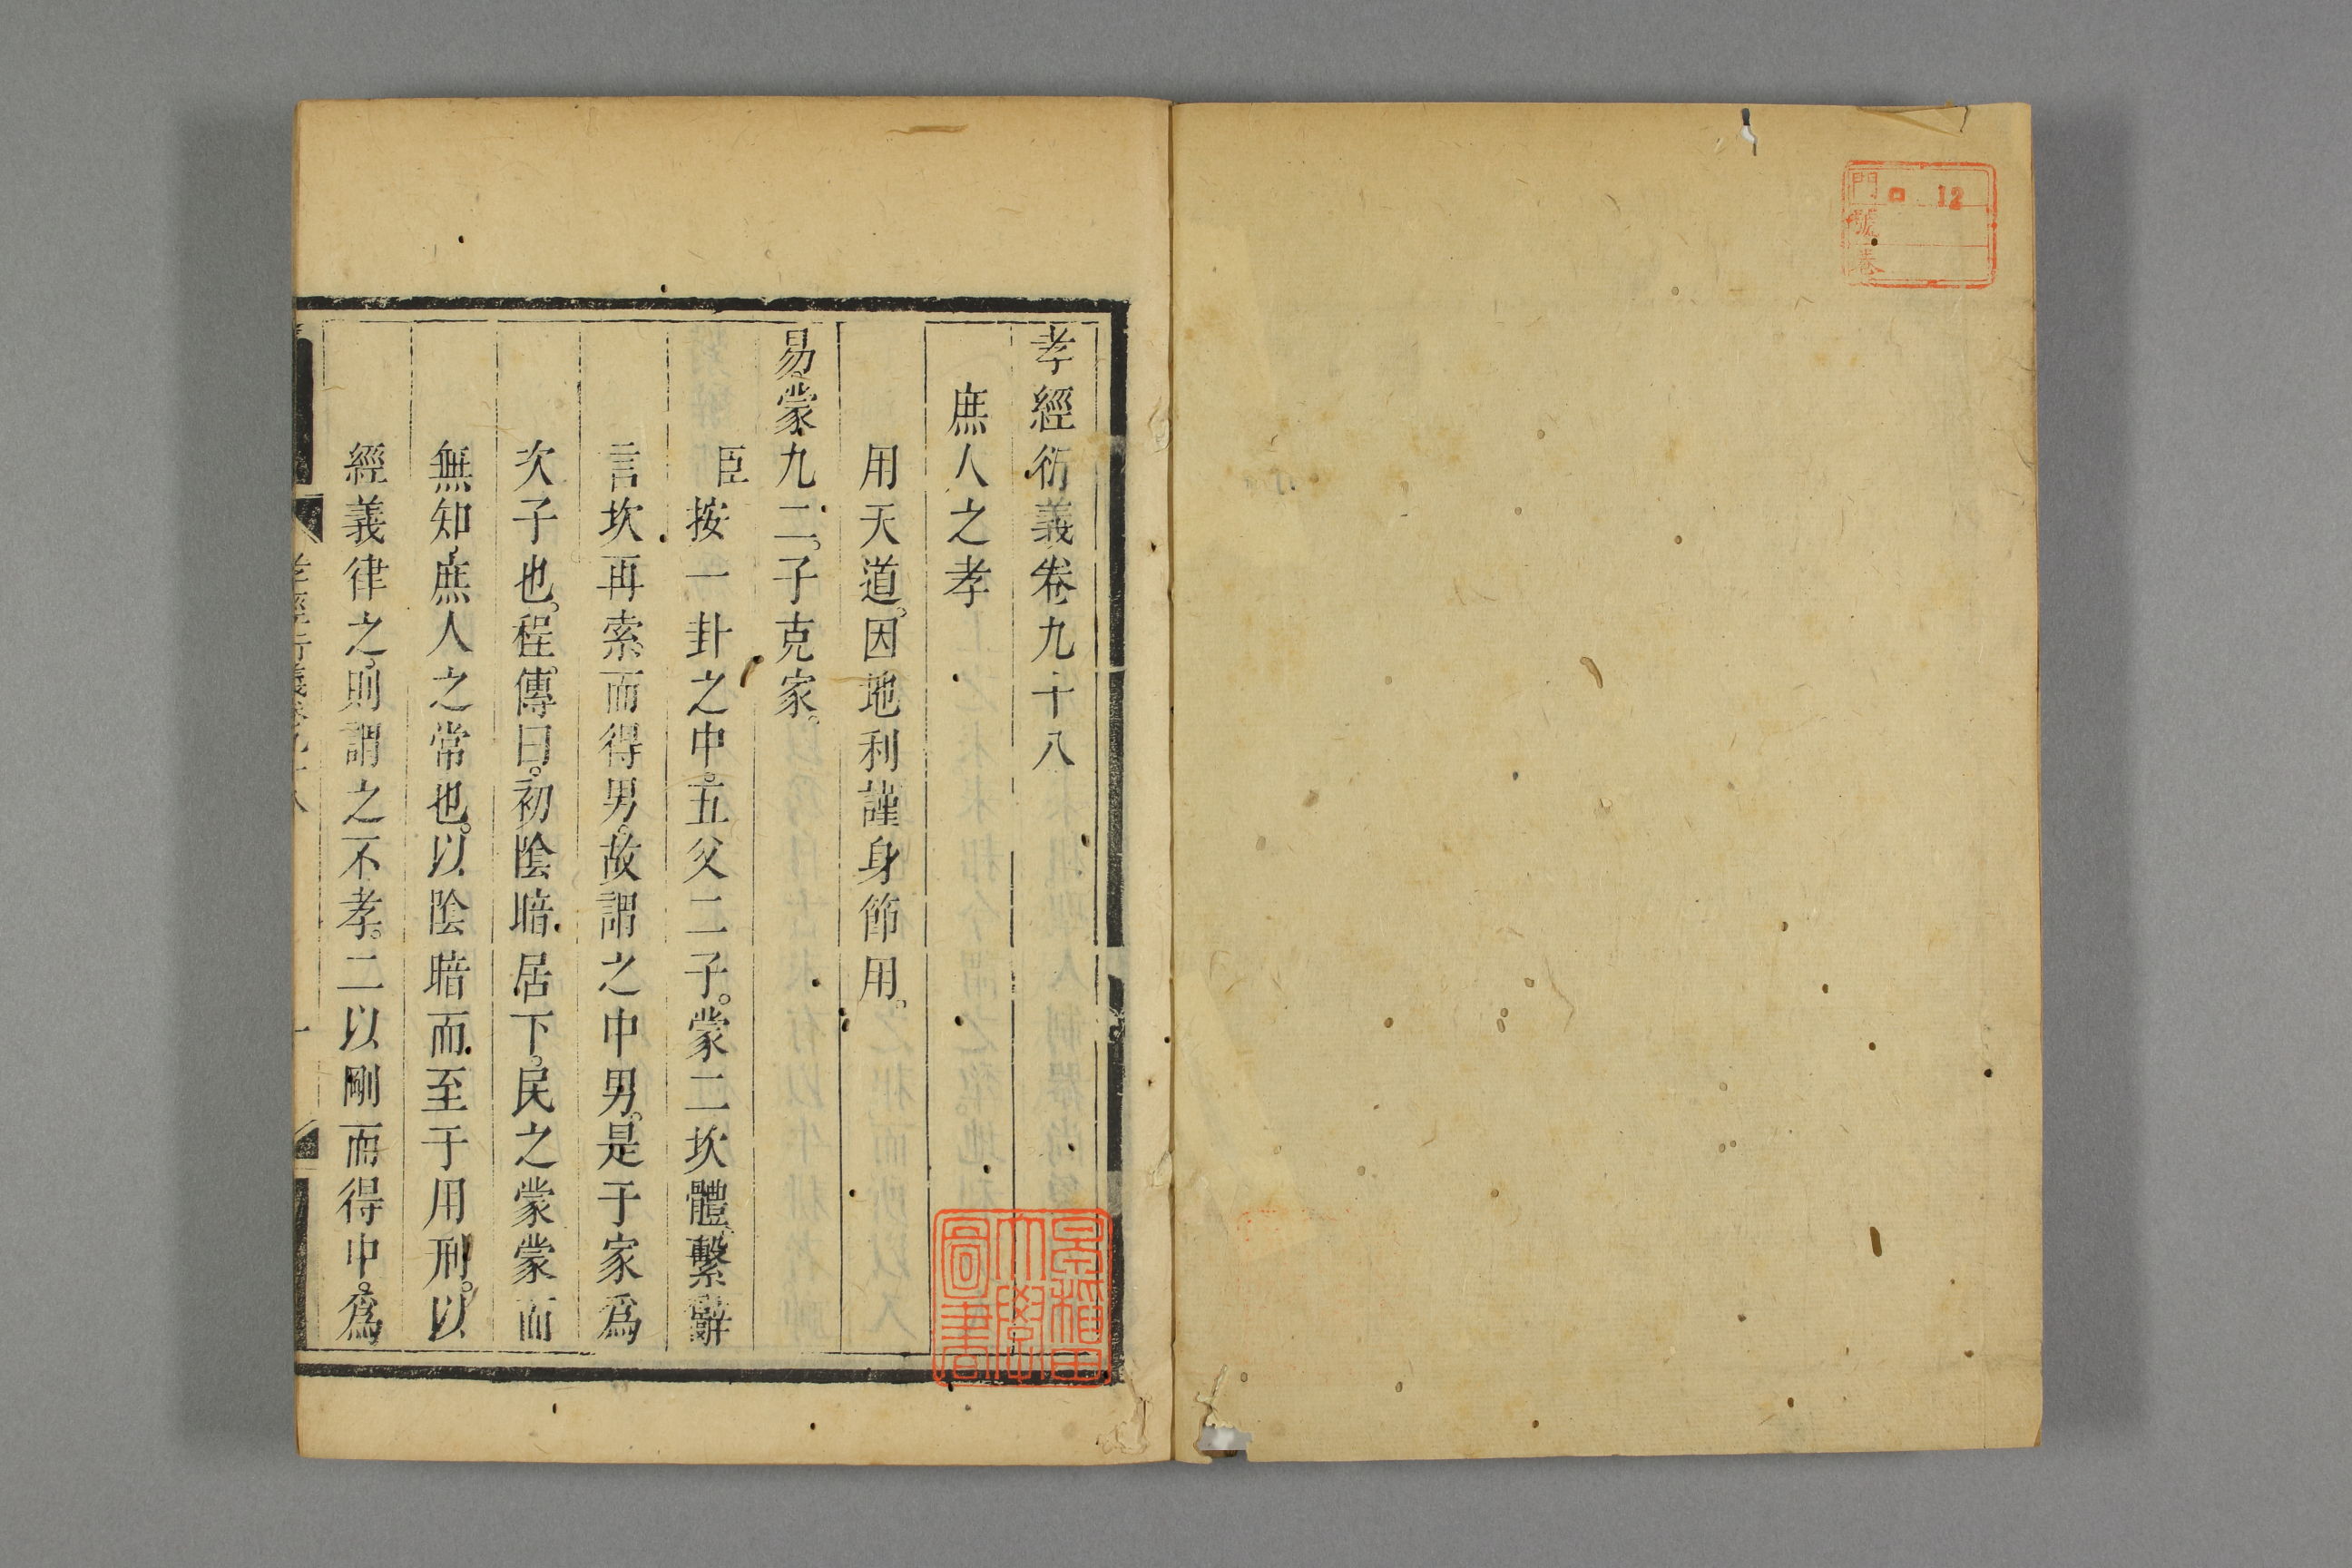 門 口 12
號
卷
孝經衍義卷九十八
庶人之孝
用天道。因地利謹身節用。
易。蒙九二。子克家。
臣按一卦之中。五父二子。蒙二坎體。繫辭
言坎再索而得男。故謂之中男。是于家爲
次子也。程傳曰。初陰暗居下。民之蒙蒙而
無知。庶人之常也。以陰暗而至于用刑。以
經義律之。則謂之不孝。二以剛而得中。爲
孝經衍義卷九十八 一
早稻田
大學
圖書